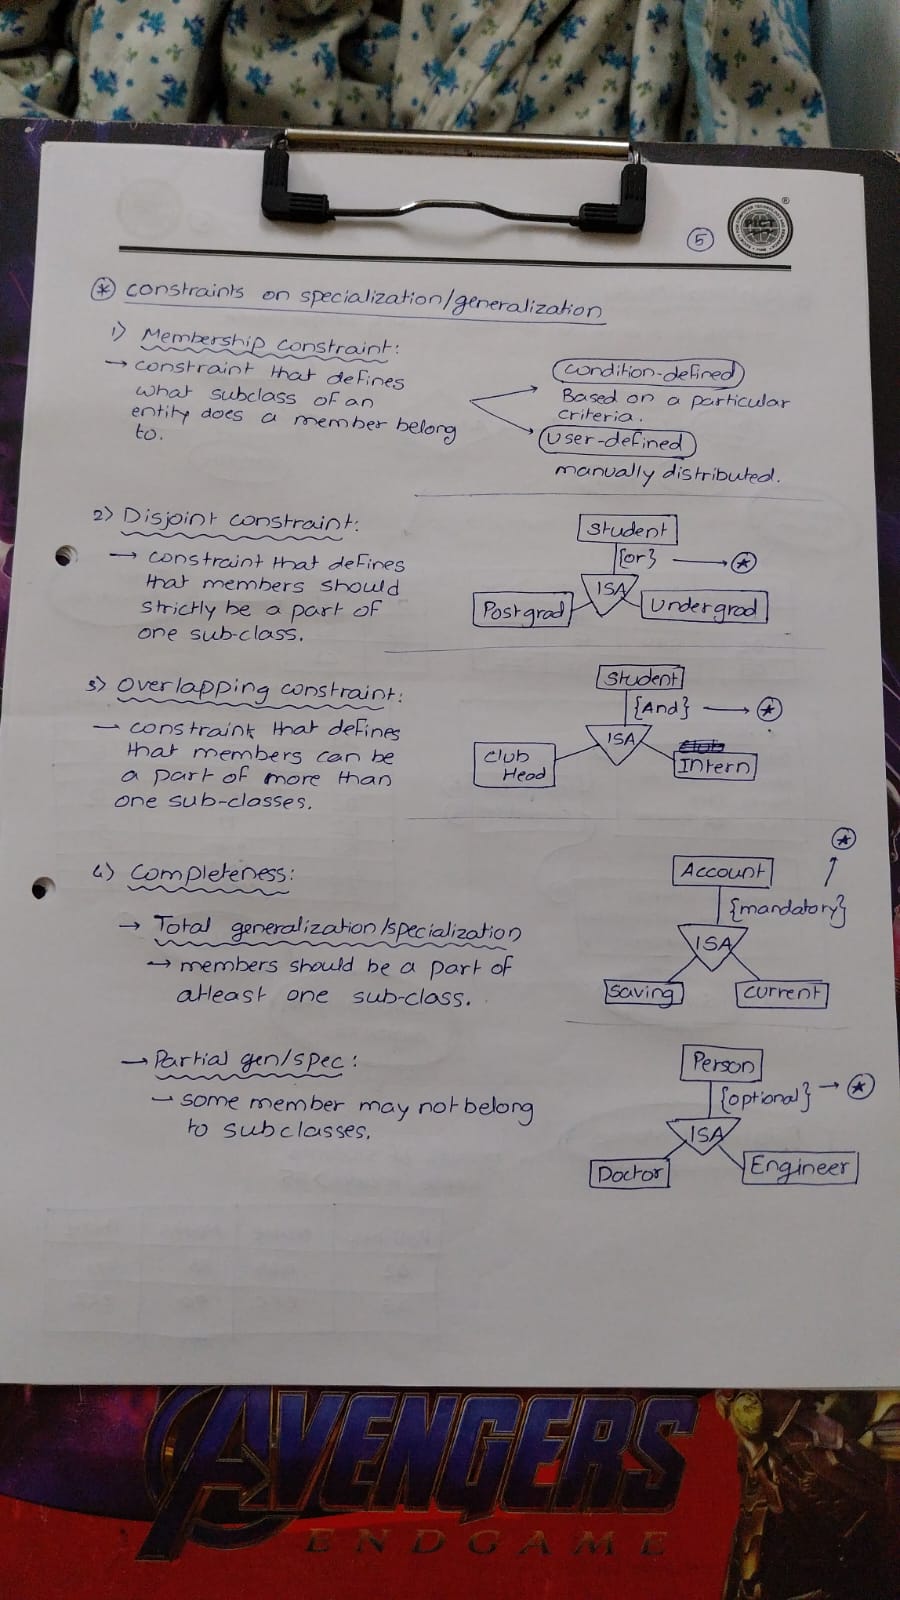 5
PICT
* Constraints on specialization/generalization
1) Membership constraint:
→ constraint that defines
what subclass of an
entity does a member belong
to.
condition-defined
Based on a particular
criteria.
User-defined
manually distributed.
2) Disjoint constraint:
→ constraint that defines
that members should
strictly be a part of
one sub-class.
Student
{or} → *
ISA
Postgrad
Undergrad
3) Overlapping constraint:
→ constraint that defines
that members can be
a part of more than
one sub-classes.
Student
{And} → *
ISA
Club
Head
Intern
4) Completeness:
→ Total generalization/specialization
→ members should be a part of
atleast one sub-class.
*
Account
{mandatory}
ISA
Saving
Current
→ Partial gen/spec:
→ some member may not belong
to subclasses.
Person
{optional} → *
ISA
Doctor
Engineer
AVENGERS
ENDGAME